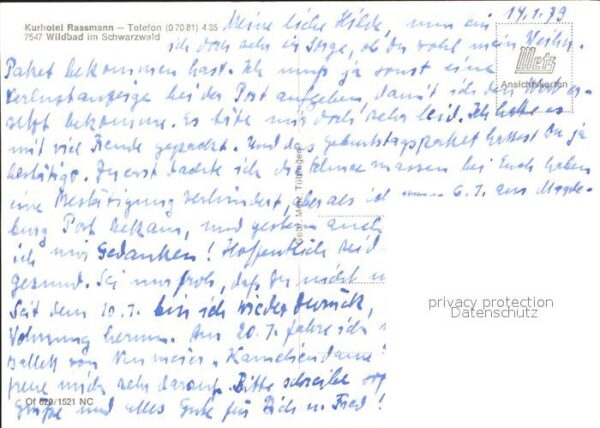 Kurhotel Rassmann — Telefon (0 70 81) 4 35
7547 Wildbad im Schwarzwald
14.1.79
Meine liebe Hilde, nun bin
ich doch sehr in Sorge, ob Du wohl mein Weihn.
Paket bekommen hast. Ich muß ja sonst eine
Verlustanzeige bei der Post aufgeben damit ich den Wert er-
setzt bekomme. Es täte mir doch sehr leid. Ich hatte es
mit viel Freude gepackt. Und das Geburtstagspaket hattest Du ja
bestätigt. Zuerst dachte ich die Schneemassen bei Euch haben
eine Bestätigung verhindert, aber als ich am 6.1. aus Magde-
burg Post bekam, und gestern auch
ich mir Gedanken! Hoffentlich seid
gesund. Sei nur froh, daß Du nicht
Seit dem 10.1. bin ich wieder zurück,
Wohnung herum. Am 20.1. fahre ich
Ballett von Neumeier „Kameliendame"
freue mich sehr darauf. Bitte schreibe
Grüße und alles Gute für Dich u. Fred!
Metz
Ansichtskarten
Gebr. Metz, Tübingen
privacy protection
Datenschutz
Of 620/1521 NC